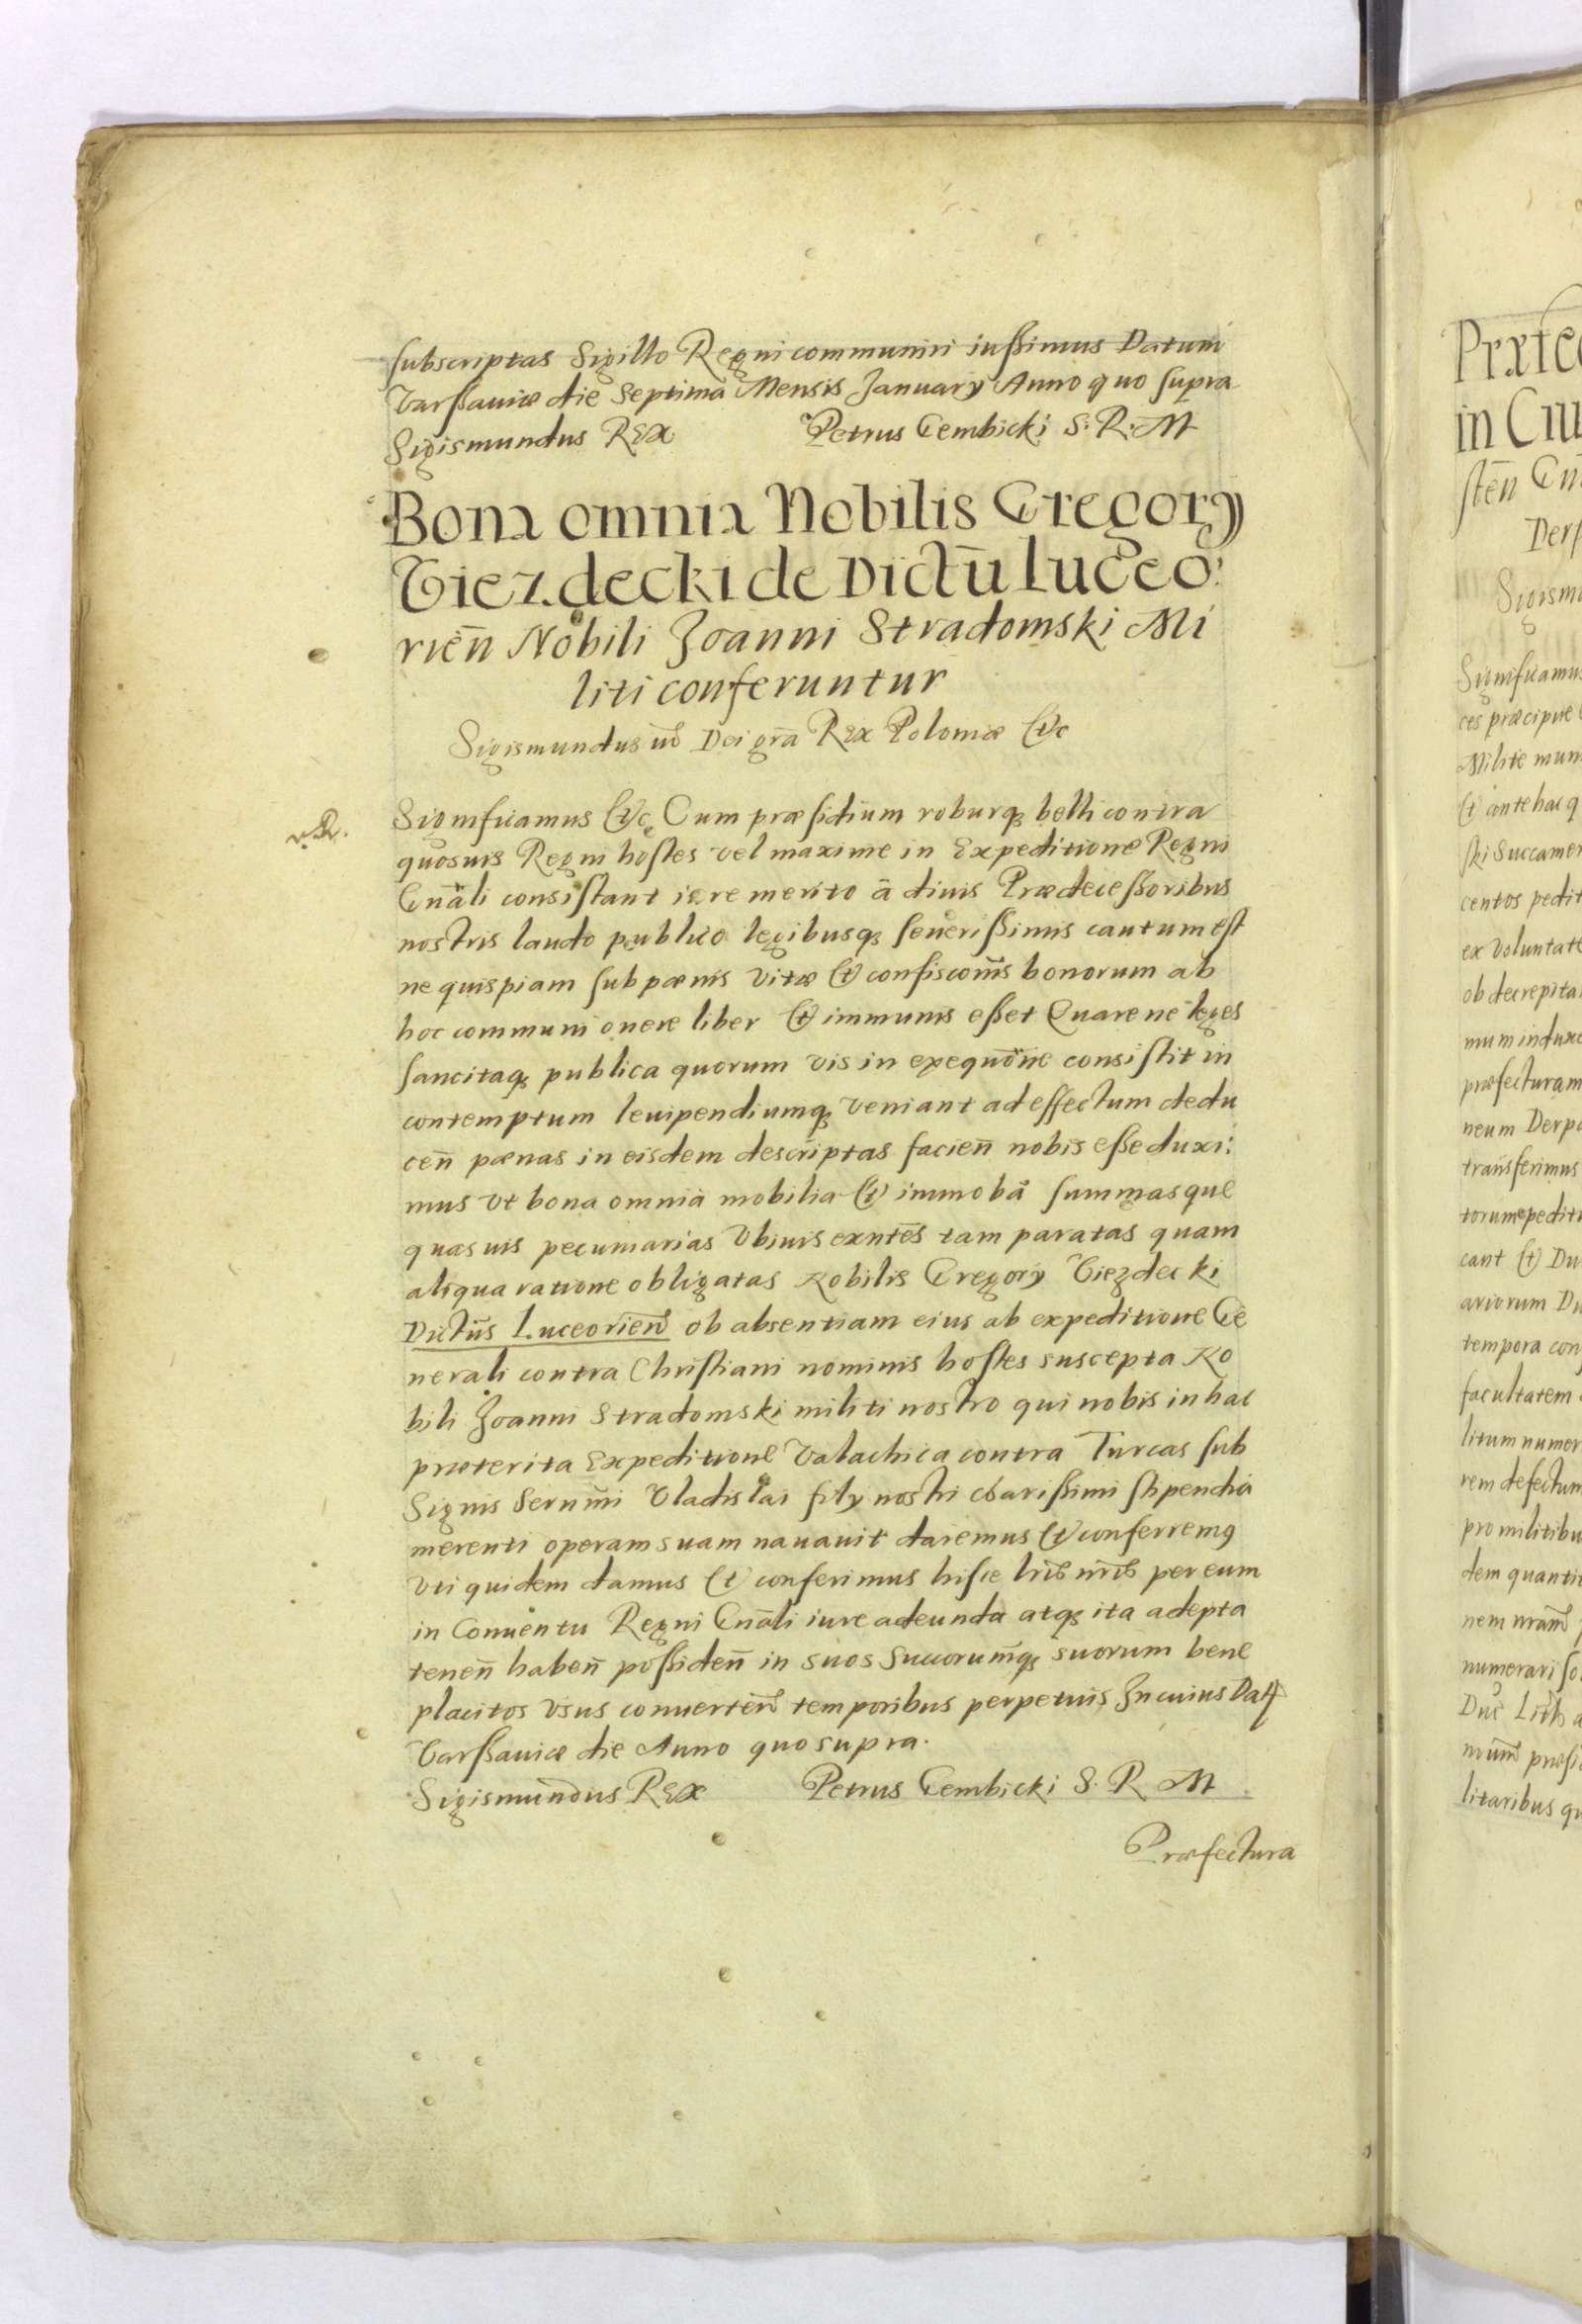 subscriptas Sigillo Regni communiri iussimus Datum
Varssaviæ die Septima Mensis Januarÿ Anno quo supra
Sigismundus Rex Petrus Gembicki S. R. M
Bona omnia Nobilis Gregorÿ
Giezdecki de Dictū luceo:
rien̄ Nobili Joanni Stradomski Mi
liti conferuntur
Sigismundus iiī Dei grā Rex Poloniæ &c
v. R.
Significamus &c Cum præsidium roburq belli contra
quosuis Regni hostes vel maxime in Expeditione Regni
Gnāli consistant iure merito ā diuis Prædecessoribus
nostris laudo publico legibusq seuerissimis cautum est
ne quispiam sub pœnis vitæ & confiscoīnis bonorum ab
hoc communi onere liber & immunis esset Quare ne leges
sancitaq publica quorum vis in exequōne consistit in
contemptum leuipendiumq veniant ad effectum dedu
cen̄ pœnas in eisdem descriptas facien̄ nobis esse duxi:
mus vt bona omnia mobilia & immobā summasque
quasuis pecuniarias vbiuis exn̄tes tam paratas quam
aliqua ratione obligatas Nobilis Gregorÿ Giezdecki
Dictūs Luceorien̄ ob absentiam eius ab expeditione Ge
nerali contra Christiani nominis hostes suscepta No
bili Joanni Stradomski militi nostro qui nobis in hac
præterita Expeditione Valachica contra Turcas sub
Signis Sernm̄i Vladislai filÿ nostri charissimi stipendia
merenti operam suam nauauit daremus & conferremq
vti quidem damus & conferimus hisce lrīs nrīs per eum
in Conuentu Regni Gnāli iure adeunda atq ita adepta
tenen̄ haben̄ possiden̄ in suos Succorum̄q suorum bene
placitos vsus conuerten̄ temporibus perpetuis In cuius Dat
Varssauiæ die Anno quo supra.
Sigismundus Rex Petrus Gembicki S. R M
Præfectura
in Ciu
sten̄ Gn
Derp
Sigism
Significamus
ces præcipue
Milite mun
& ante hac q
ski Succamer
centos pedit
ex voluntate
ob decrepita
mum induxe
præfecturam
neum Derpa
transferimus
torum pedit
cant & Du
ariorum Du
tempora con
facultatem
litum numer
rem defectum
pro militibu
dem quanti
nem nram̄
numerari so
Duc Lith a
num̄ præsi
litaribus qu